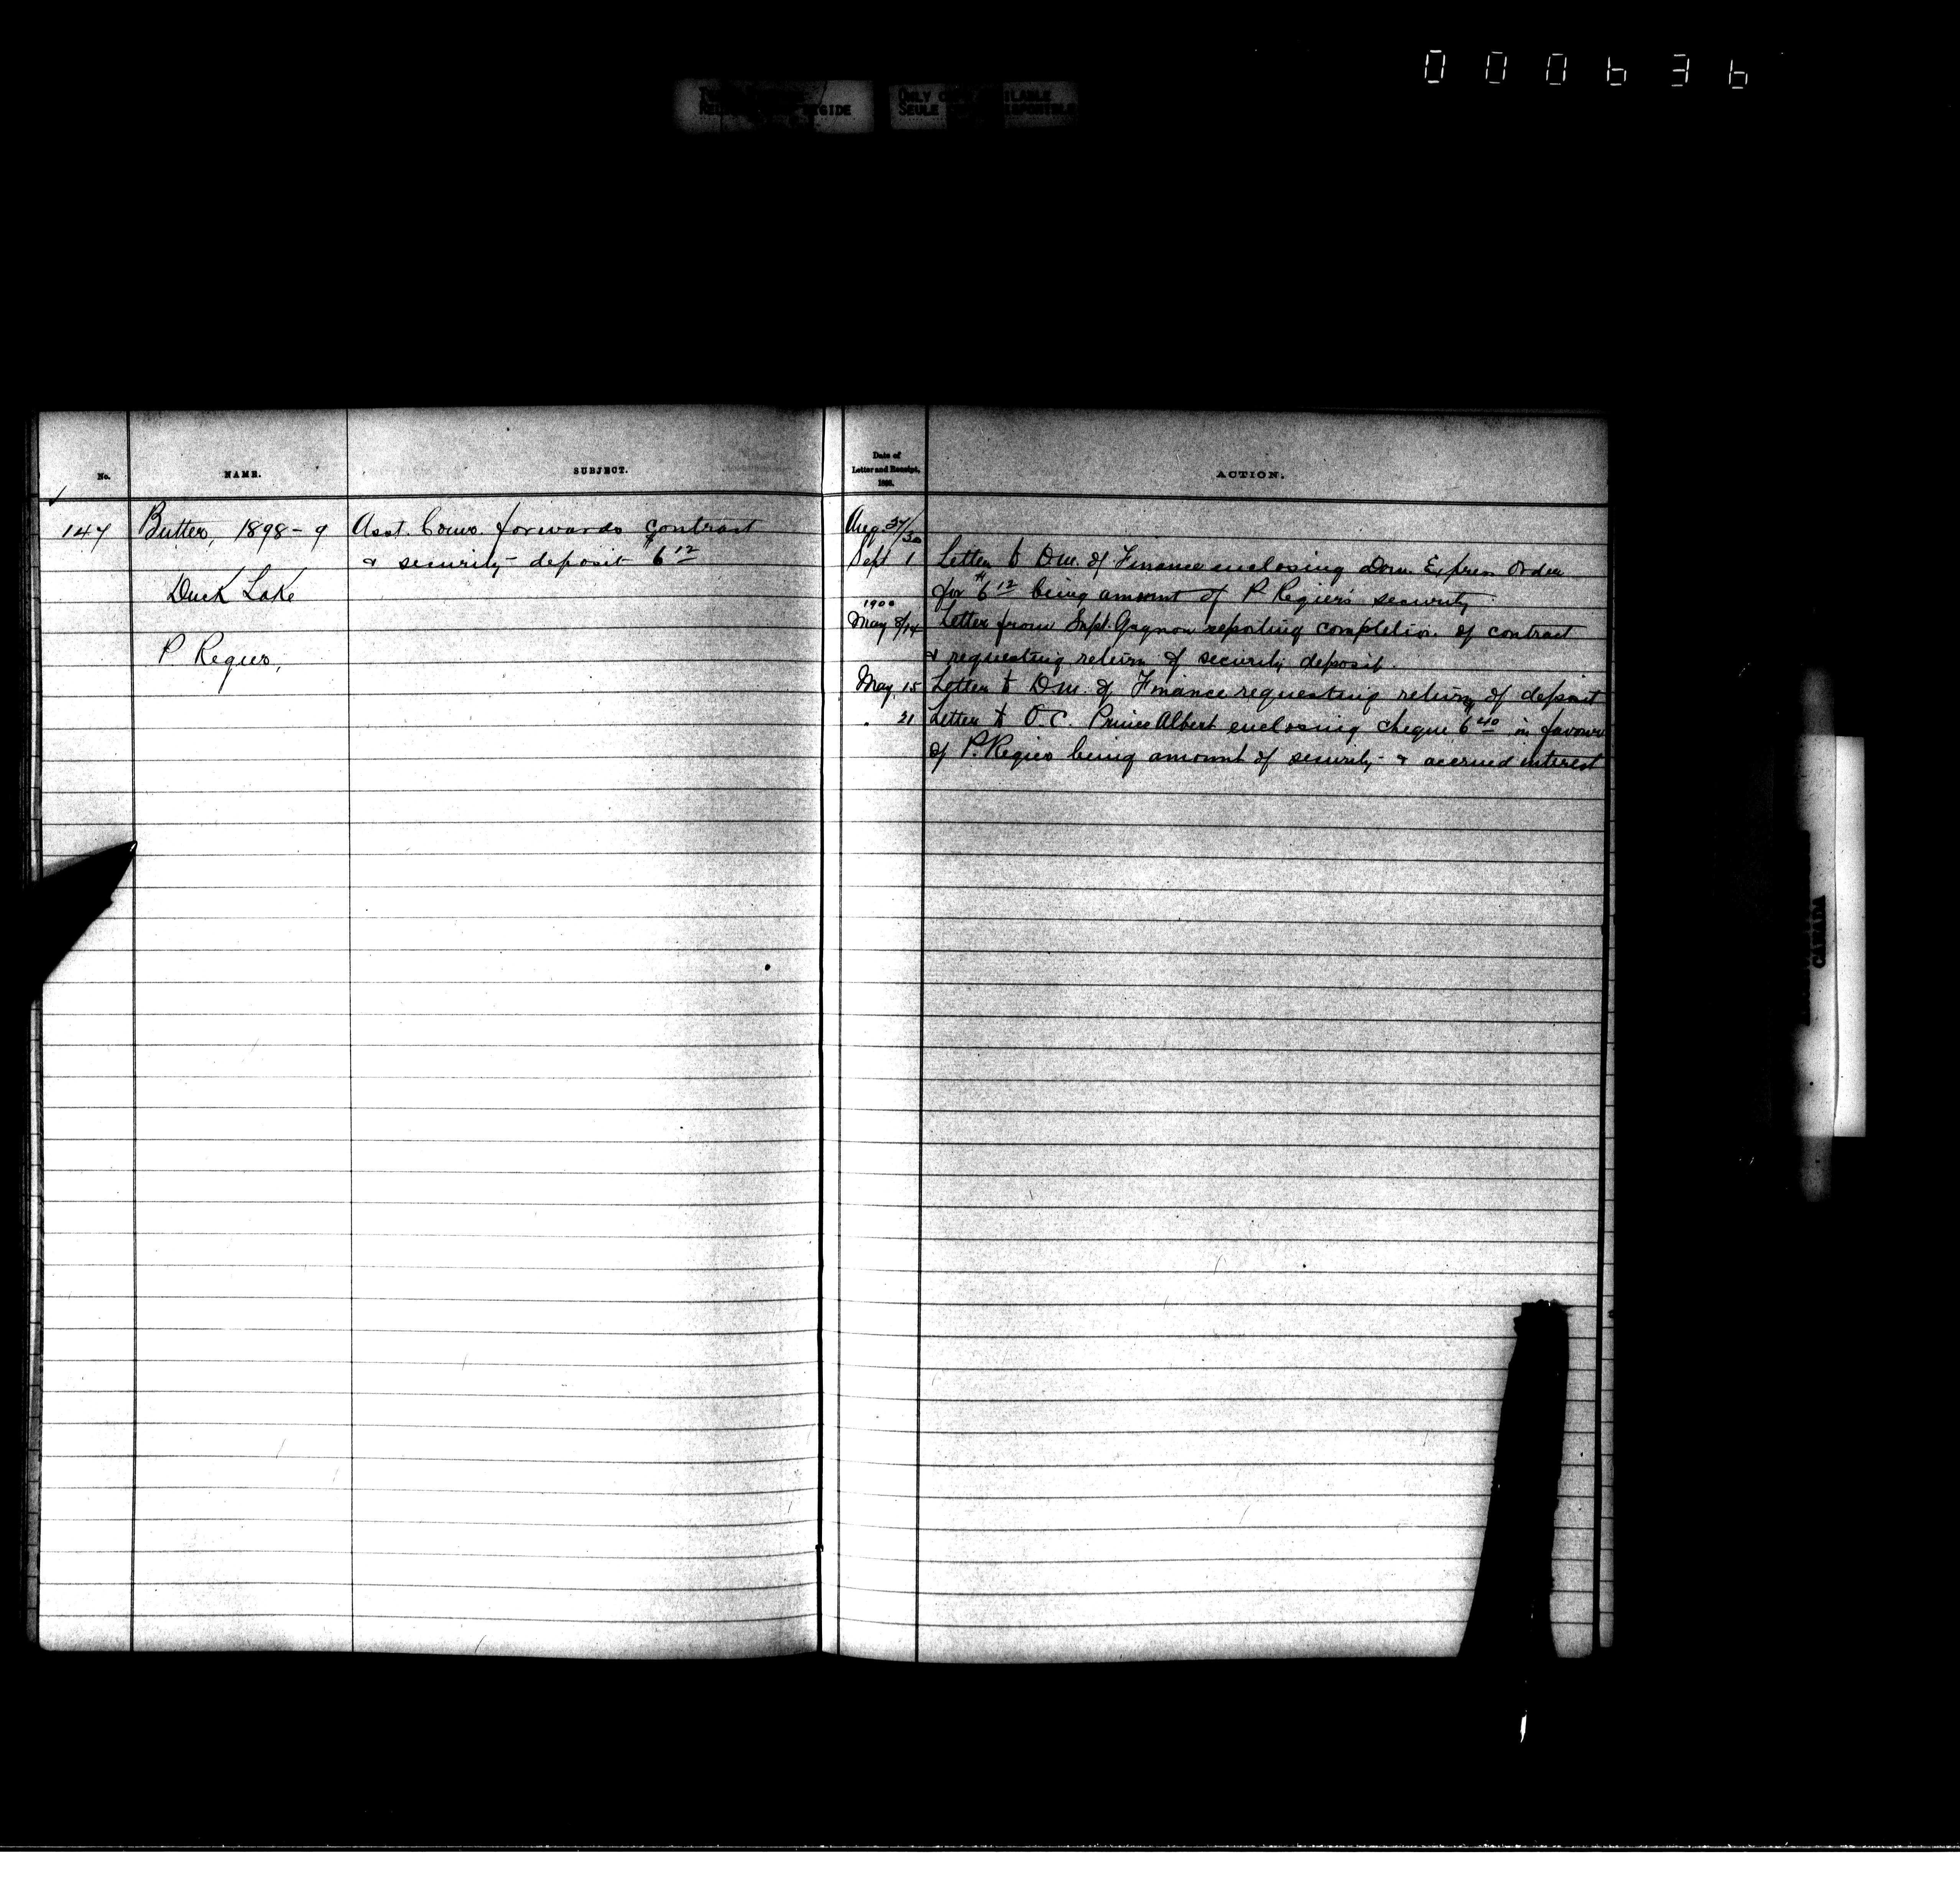 000636
ONLY COPY AVAILABLE
SEULE DISPONIBLE
No. NAME. SUBJECT. Date of Letter and Receipt, ACTION.
147 Butter, 1898-9 Asst. Coms. forwards contract Aug 27/30
& security deposit $6 12 Sept 1 Letter to D.M. of Finance enclosing Dom. Express Order
Duck Lake for $6 12 being amount of P Regier's security
1900
May 8/14 Letter from Supt. Gagnon reporting completion of contract
P Regier, & requesting return of security deposit.
May 15 Letter to D.M. of Finance requesting return of deposit
" 21 Letter to O.C. Prince Albert enclosing cheque 6 40 in favour
of P. Regier being amount of security & accrued interest
CANADA